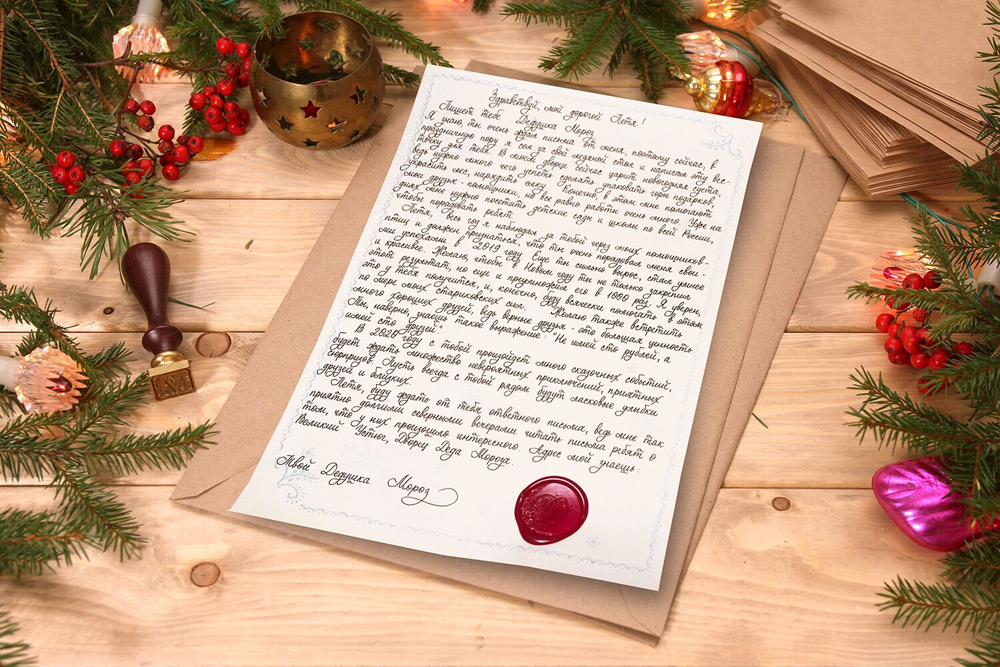 Здравствуй, мой дорогой Петя!
Пишет тебе Дедушка Мороз.
Я знаю, ты очень ждал письма от меня, поэтому сейчас, в
праздничную пору я сел за свой ледяной стол и написал эту вес-
точку для тебя. В моем дворце сейчас царит новогодняя суета,
ведь нужно много чего успеть сделать: упаковать горы подарков,
украсить лес, нарядить елку... Конечно, в этом мне помогают
мои друзья-помощники, но все равно работы очень много. Уже на
днях мне нужно посетить детские сады и школы по всей России,
чтобы порадовать ребят.
Петя, весь год я наблюдал за тобой через моих помощников-
птиц и должен признаться, что ты очень порадовал меня свои-
ми успехами в 2019 году. Еще ты сильно вырос, стал умнее
и красивее. Желаю, чтобы в Новом году ты не только закрепил
этот результат, но еще и приумножил его в 1000 раз. Я уверен,
это у тебя получится, и, конечно, буду всячески помогать в этом
по мере моих стариковских сил. Желаю также встретить
много хороших друзей, ведь верные друзья - это большая ценность.
Ты, наверно, знаешь такое выражение: "Не имей сто рублей, а
имей сто друзей".
В 2020 году с тобой произойдет много сказочных событий,
будет ждать множество невероятных приключений, приятных
сюрпризов. Пусть всегда с тобой рядом будут ласковые улыбки
друзей и близких.
Петя, буду ждать от тебя ответного письма, ведь мне так
приятно долгими северными вечерами читать письма ребят о
том, что у них произошло интересного. Адрес мой знаешь:
Великий Устюг, Дворец Деда Мороза.
Твой Дедушка Мороз